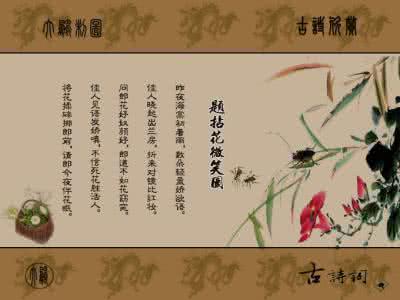 题拈花微笑图
昨夜海棠初著雨，数朵轻盈娇欲语。
佳人晓起出兰房，折来对镜比红妆。
问郎花好奴颜好，郎道不如花窈窕。
佳人见语发娇嗔，不信死花胜活人。
将花揉碎掷郎前，请郎今夜伴花眠。
古詩词